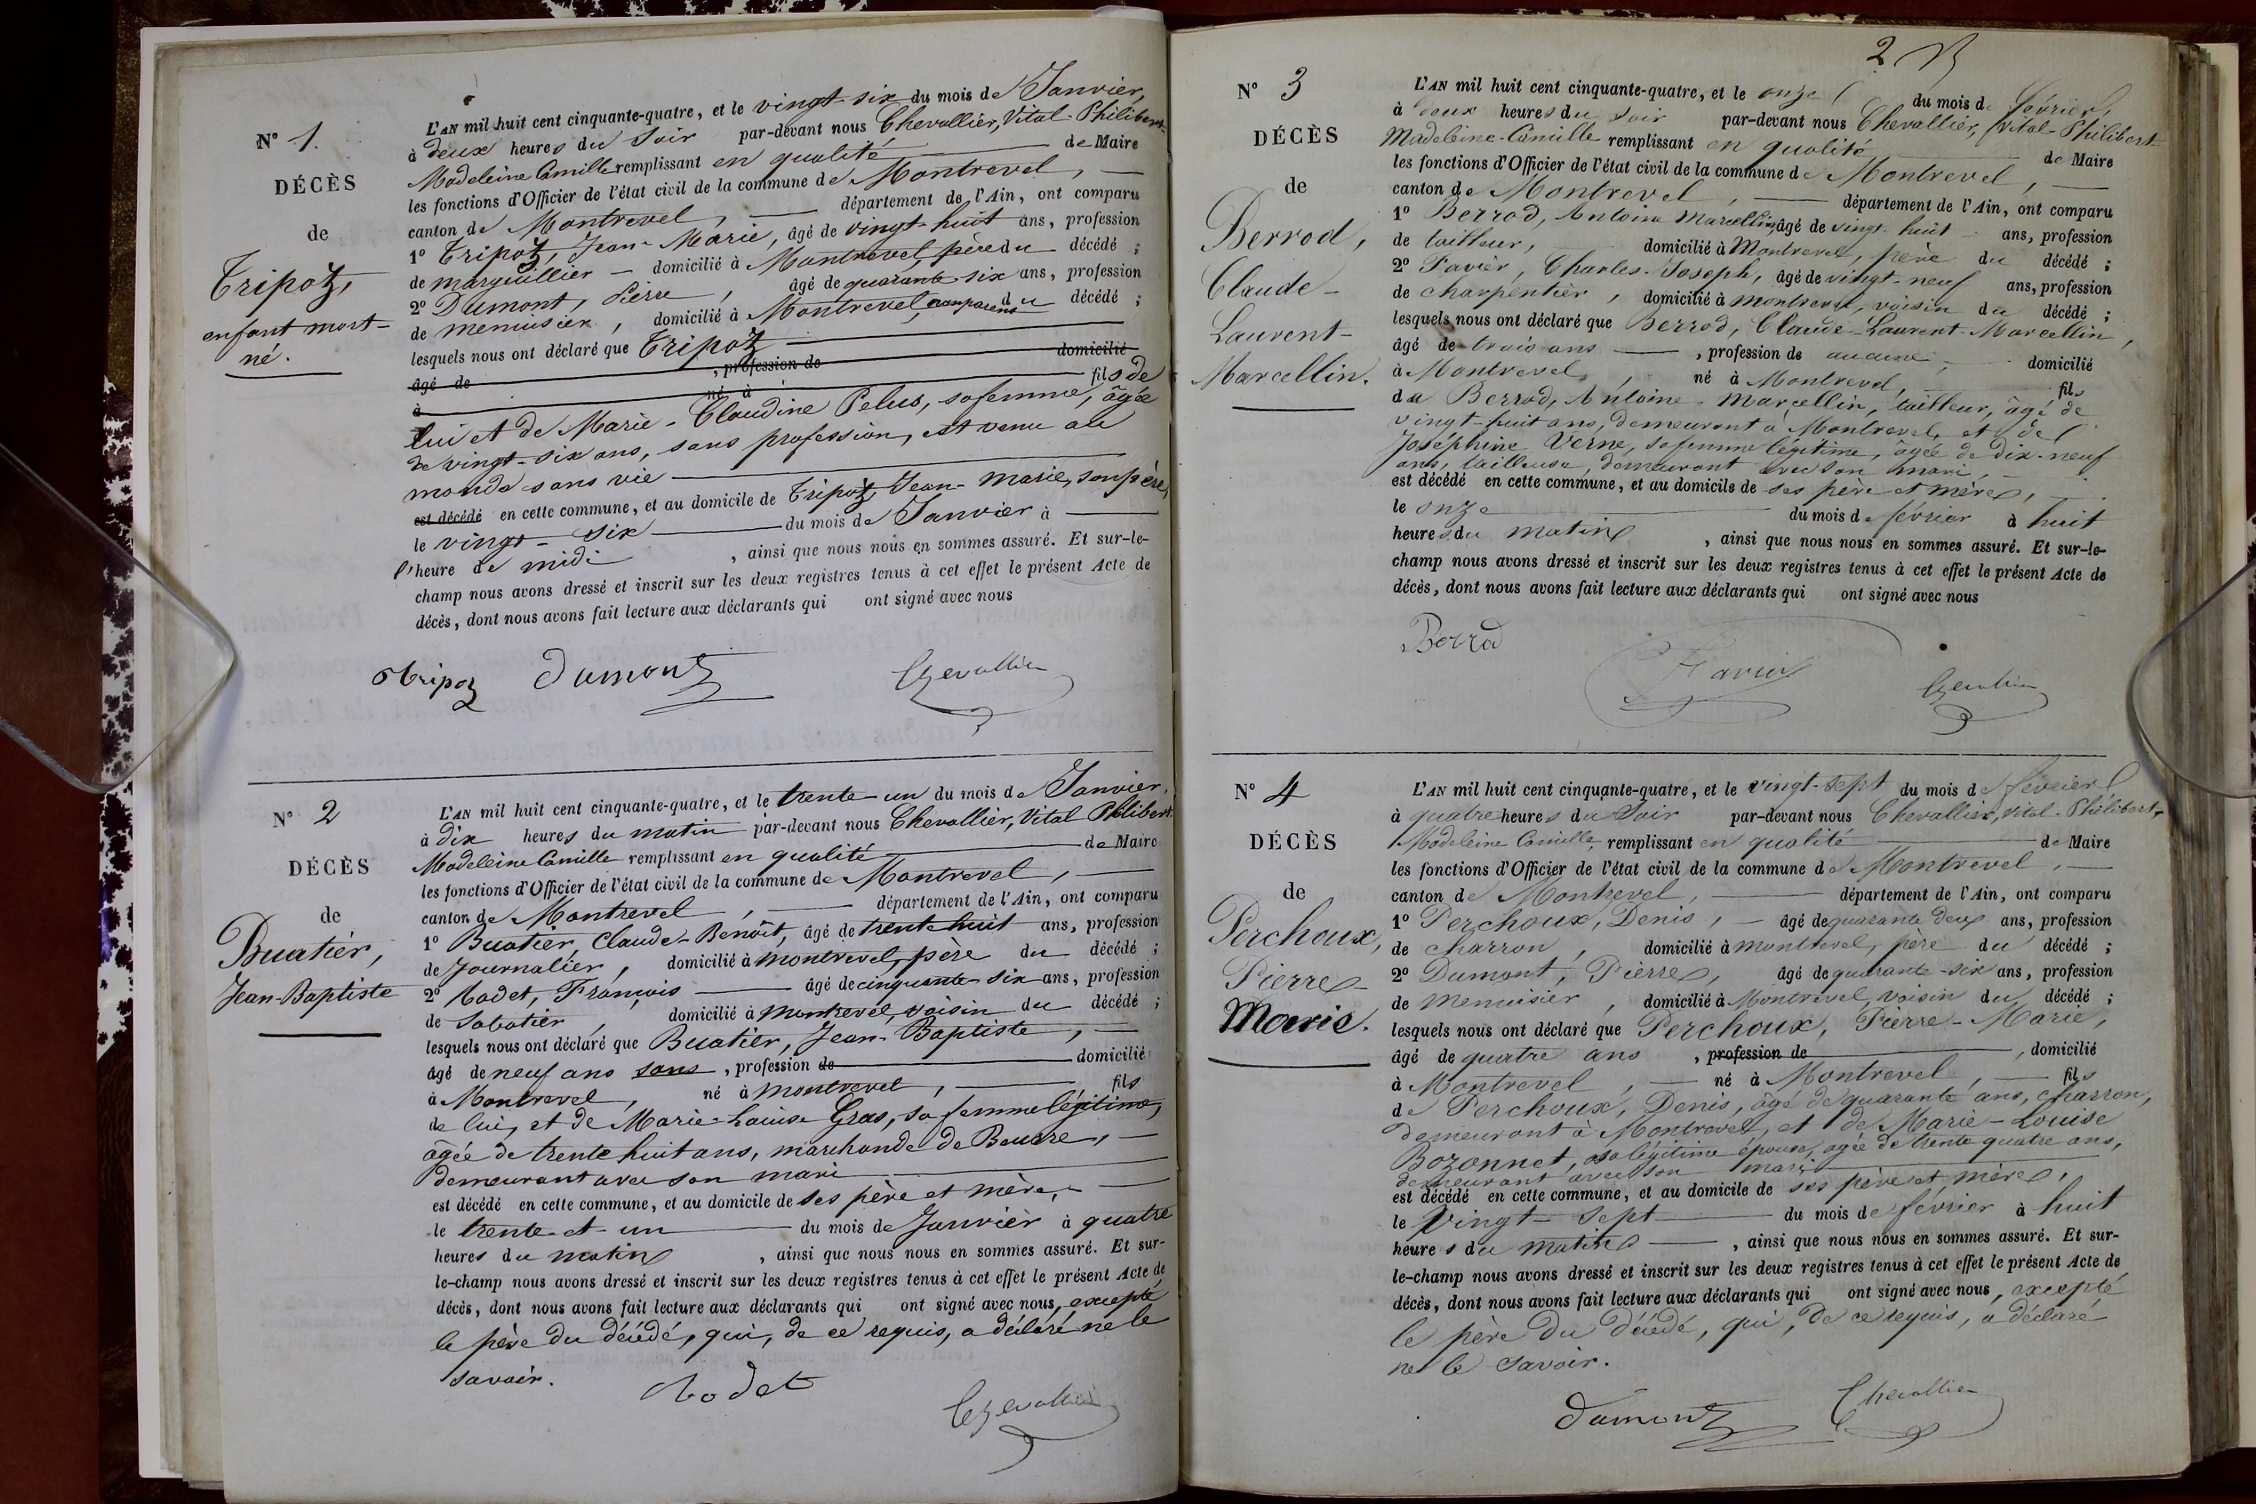 N° 1.
DÉCÈS
de
Tripoz,
enfant mort-
né.
L'AN mil huit cent cinquante-quatre, et le vingt-six du mois de Janvier,
à deux heures du soir par-devant nous Chevallier, Vital-Philibert-
Madeleine Camille remplissant en qualité de Maire
les fonctions d'Officier de l'état civil de la commune de Montrevel,
canton de Montrevel, département de l'Ain, ont comparu
1° Tripoz, Jean-Marie, âgé de vingt-huit ans, profession
de marguillier domicilié à Montrevel, père du décédé ;
2° Dumont, Pierre, âgé de quarante-six ans, profession
de menuisier, domicilié à Montrevel, non parent du décédé ;
lesquels nous ont déclaré que Tripoz
âgé de , profession de domicilié
à né à fils de
lui et de Marie-Claudine Pelus, sa femme, âgée
de vingt-six ans, sans profession, est venu au
monde sans vie
est décédé en cette commune, et au domicile de Tripoz, Jean-Marie, son père,
le vingt-six du mois de Janvier à
l'heure de midi , ainsi que nous nous en sommes assuré. Et sur-le-
champ nous avons dressé et inscrit sur les deux registres tenus à cet effet le présent Acte de
décès, dont nous avons fait lecture aux déclarants qui ont signé avec nous
Tripoz Dumont Chevallier
N° 2
DÉCÈS
de
Buatier,
Jean-Baptiste
L'AN mil huit cent cinquante-quatre, et le trente-un du mois de Janvier,
à dix heures du matin par-devant nous Chevallier, Vital Philibert
Madeleine Camille remplissant en qualité de Maire
les fonctions d'Officier de l'état civil de la commune de Montrevel,
canton de Montrevel, département de l'Ain, ont comparu
1° Buatier, Claude-Benoît, âgé de trente huit ans, profession
de Journalier, domicilié à Montrevel, père du décédé ;
2° Rodet, François âgé de cinquante-six ans, profession
de sabotier, domicilié à Montrevel, voisin du décédé ;
lesquels nous ont déclaré que Buatier, Jean-Baptiste,
âgé de neuf ans sans, profession de domicilié
à Montrevel, né à Montrevel, fils
de lui, et de Marie-Louise Gras, sa femme légitime,
âgée de trente huit ans, marchande de Beurre,
demeurant avec son mari
est décédé en cette commune, et au domicile de ses père et mère,
le trente-et-un du mois de Janvier à quatre
heures du matin , ainsi que nous nous en sommes assuré. Et sur-
le-champ nous avons dressé et inscrit sur les deux registres tenus à cet effet le présent Acte de
décès, dont nous avons fait lecture aux déclarants qui ont signé avec nous, excepté
le père du décédé, qui, de ce requis, a déclaré ne le
savoir.
Rodet Chevallier
2
N° 3
DÉCÈS
de
Berrod,
Claude-
Laurent-
Marcellin.
L'AN mil huit cent cinquante-quatre, et le onze du mois de février,
à deux heures du soir par-devant nous Chevallier, Vital-Philibert
Madeleine-Camille remplissant en qualité de Maire
les fonctions d'Officier de l'état civil de la commune de Montrevel,
canton de Montrevel, département de l'Ain, ont comparu
1° Berrod, Antoine Marcellin, âgé de vingt-huit ans, profession
de tailleur, domicilié à Montrevel, père du décédé ;
2° Favier, Charles-Joseph, âgé de vingt-neuf ans, profession
de charpentier, domicilié à Montrevel, voisin du décédé ;
lesquels nous ont déclaré que Berrod, Claude-Laurent-Marcellin,
âgé de trois ans , profession de aucune, domicilié
à Montrevel, né à Montrevel, fils
du Berrod, Antoine-Marcellin, tailleur, âgé de
vingt-huit ans, demeurant à Montrevel, et de
Joséphine Verne, sa femme légitime, âgée de dix-neuf
ans, tailleuse, demeurant avec son mari,
est décédé en cette commune, et au domicile de ses père et mère,
le onze du mois de février à huit
heures du matin , ainsi que nous nous en sommes assuré. Et sur-le-
champ nous avons dressé et inscrit sur les deux registres tenus à cet effet le présent Acte de
décès, dont nous avons fait lecture aux déclarants qui ont signé avec nous
Berrod Favier Chevallier
N° 4
DÉCÈS
de
Perchoux,
Pierre-
Marie.
L'AN mil huit cent cinquante-quatre, et le vingt-sept du mois de février
à quatre heures du soir par-devant nous Chevallier, Vital-Philibert-
Madeleine Camille, remplissant en qualité de Maire
les fonctions d'Officier de l'état civil de la commune de Montrevel,
canton de Montrevel, département de l'Ain, ont comparu
1° Perchoux, Denis, âgé de quarante deux ans, profession
de charron, domicilié à Montrevel, père du décédé ;
2° Dumont, Pierre, âgé de quarante-six ans, profession
de menuisier, domicilié à Montrevel, voisin du décédé ;
lesquels nous ont déclaré que Perchoux, Pierre-Marie,
âgé de quatre ans , profession de , domicilié
à Montrevel, né à Montrevel, fils
de Perchoux, Denis, âgé de quarante ans, charron,
demeurant à Montrevel, et de Marie-Louise
Bozonnet, sa légitime épouse, âgée de trente quatre ans,
demeurant avec son mari
est décédé en cette commune, et au domicile de ses père et mère,
le vingt-sept du mois de février à huit
heures du matin , ainsi que nous nous en sommes assuré. Et sur-
le-champ nous avons dressé et inscrit sur les deux registres tenus à cet effet le présent Acte de
décès, dont nous avons fait lecture aux déclarants qui ont signé avec nous, excepté
le père du décédé, qui, de ce requis, a déclaré
ne le savoir.
Dumont Chevallier